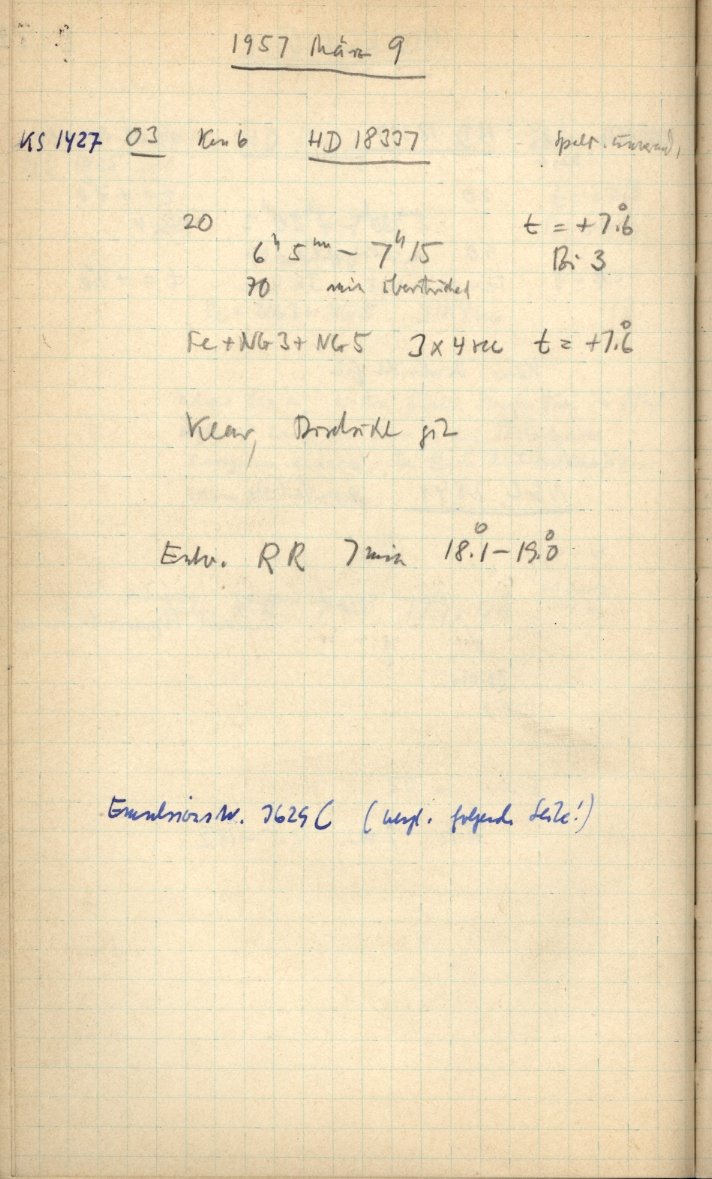 1957 März 9
KS 1427 03 HD 18337 Spalt.
20 t = +7.°6
6ʰ 5ᵐ – 7ʰ 15 Bi 3
70 min
Fe + NG3 + NG5 3 x 4 sec t = +7.°6
Klar, Durchsicht gut
Entw. RR 7 min 18.°1 – 19.°0
Emulsions Nr. 7629 C (vergl. folgende Seite!)